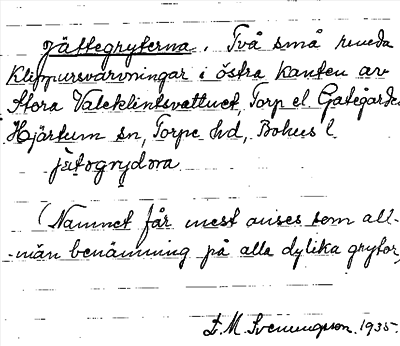 Jättegryterna. Två små runda
klippursvarvningar i östra kanten av
Stora Valeklintsvattnet, Torp el. Gategården
Hjärtum sn, Torpe hd, Bohus l.
jätogrydora
(Namnet får mest anses som all-
-män benämning på alla dylika grytor,
F. M. Svenungsson. 1935.